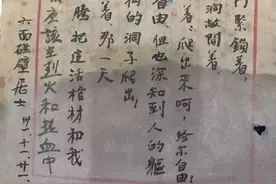 门紧鎖着，
洞敞開着，
着：爬出來呵，給尔自由！
自由，但也深知到人的軀
狗的洞子爬出！
着，那一天
騰把這活棺材和我
應該在烈火和热血中
六面碰壁居士 卅一·十一·廿一·